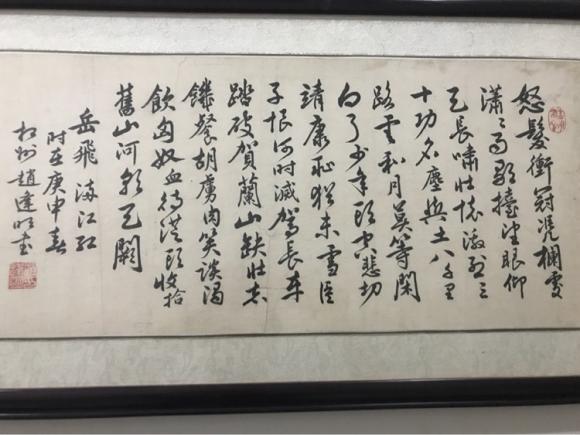 怒髮衝冠凭欄處
瀟瀟雨歇擡望眼仰
天長嘯壯懷激烈三
十功名塵與土八千里
路雲和月莫等閑
白了少年頭空悲切
靖康恥猶未雪臣
子恨何時滅駕長車
踏破賀蘭山缺壯志
饑餐胡虜肉笑談渴
飲匈奴血待從頭收拾
舊山河朝天闕
岳飛 滿江紅
時在庚申春
趙 明書